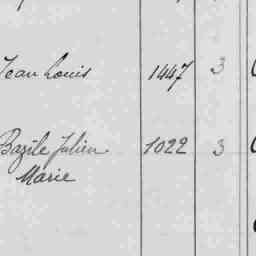 Jean Louis 1447 3
Bazile Julien 1022 3
Marie